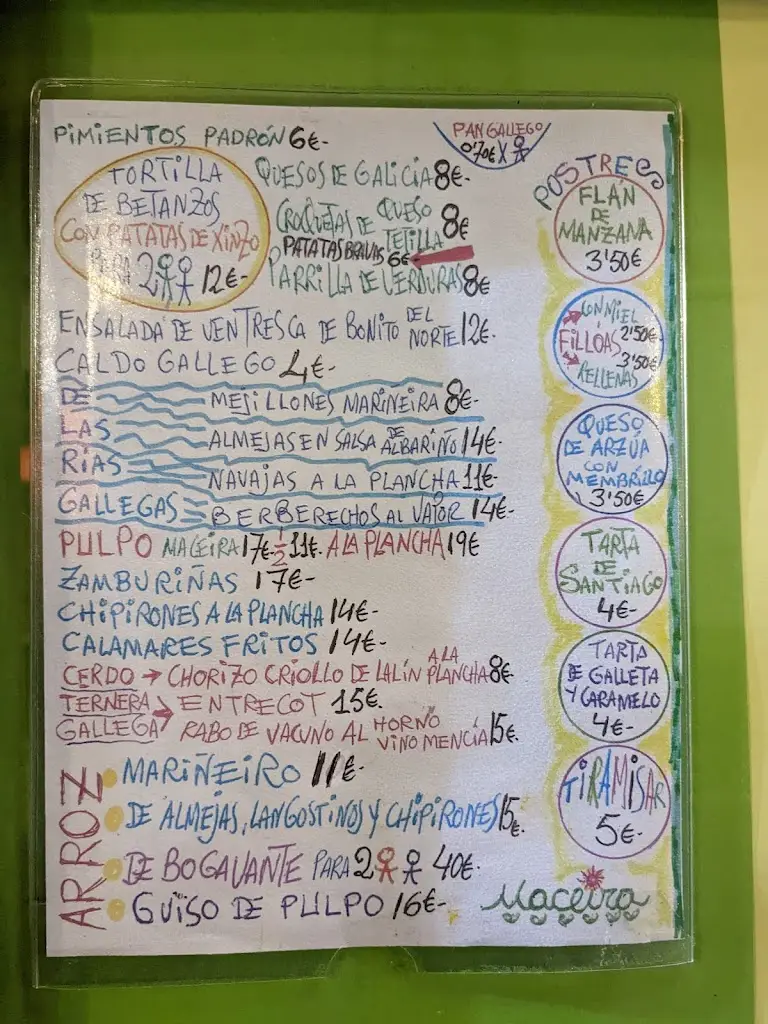 PIMIENTOS PADRÓN 6€-
PAN GALLEGO
0'70€ X
TORTILLA
DE BETANZOS
CON PATATAS DE XINZO
PARA 2 12€-
QUESOS DE GALICIA 8€-
CROQUETAS DE QUESO
TETILLA 8€
PATATAS BRAVAS 6€
PARRILLA DE VERDURAS 8€
ENSALADA DE VENTRESCA DE BONITO DEL
NORTE 12€-
CALDO GALLEGO 4€-
DE LAS RIAS GALLEGAS
MEJILLONES MARIÑEIRA 8€-
ALMEJAS EN SALSA DE ALBARIÑO 14€-
NAVAJAS A LA PLANCHA 11€-
BERBERECHOS AL VAPOR 14€-
PULPO MACEIRA 17€-½ 11€. A LA PLANCHA 19€
ZAMBURIÑAS 17€-
CHIPIRONES A LA PLANCHA 14€-
CALAMARES FRITOS 14€-
CERDO → CHORIZO CRIOLLO DE LALÍN A LA PLANCHA 8€-
TERNERA GALLEGA
ENTRECOT 15€.
RABO DE VACUNO AL HORNO
VINO MENCÍA 15€.
ARROZ
MARIÑEIRO 11€-
DE ALMEJAS, LANGOSTINOS Y CHIPIRONES 15€.
DE BOGAVANTE PARA 2 40€-
GUISO DE PULPO 16€-
POSTRES
FLÁN
DE
MANZANA
3'50€
CON MIEL
2'50€
FILLOAS
3'50€
RELLENAS
QUESO
DE ARZÚA
CON
MEMBRILLO
3'50€
TARTA
DE
SANTIAGO
4€-
TARTA
DE GALLETA
Y CARAMELO
4€-
TIRAMISAR
5€-
Maceira